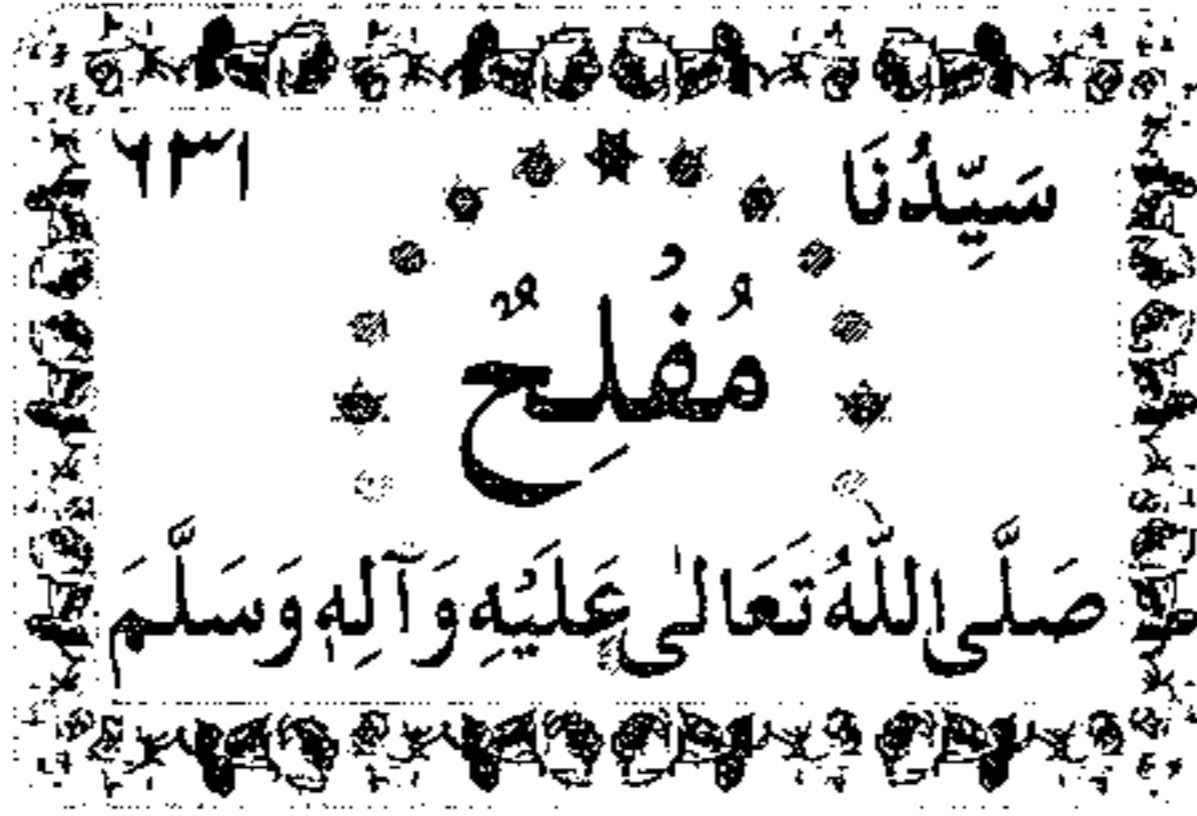 سَيِّدُنَا ٦٣١
مُفْلِحٌ
صَلَّى اللّٰهُ تَعَالٰى عَلَيْهِ وَآلِهٖ وَسَلَّمَ